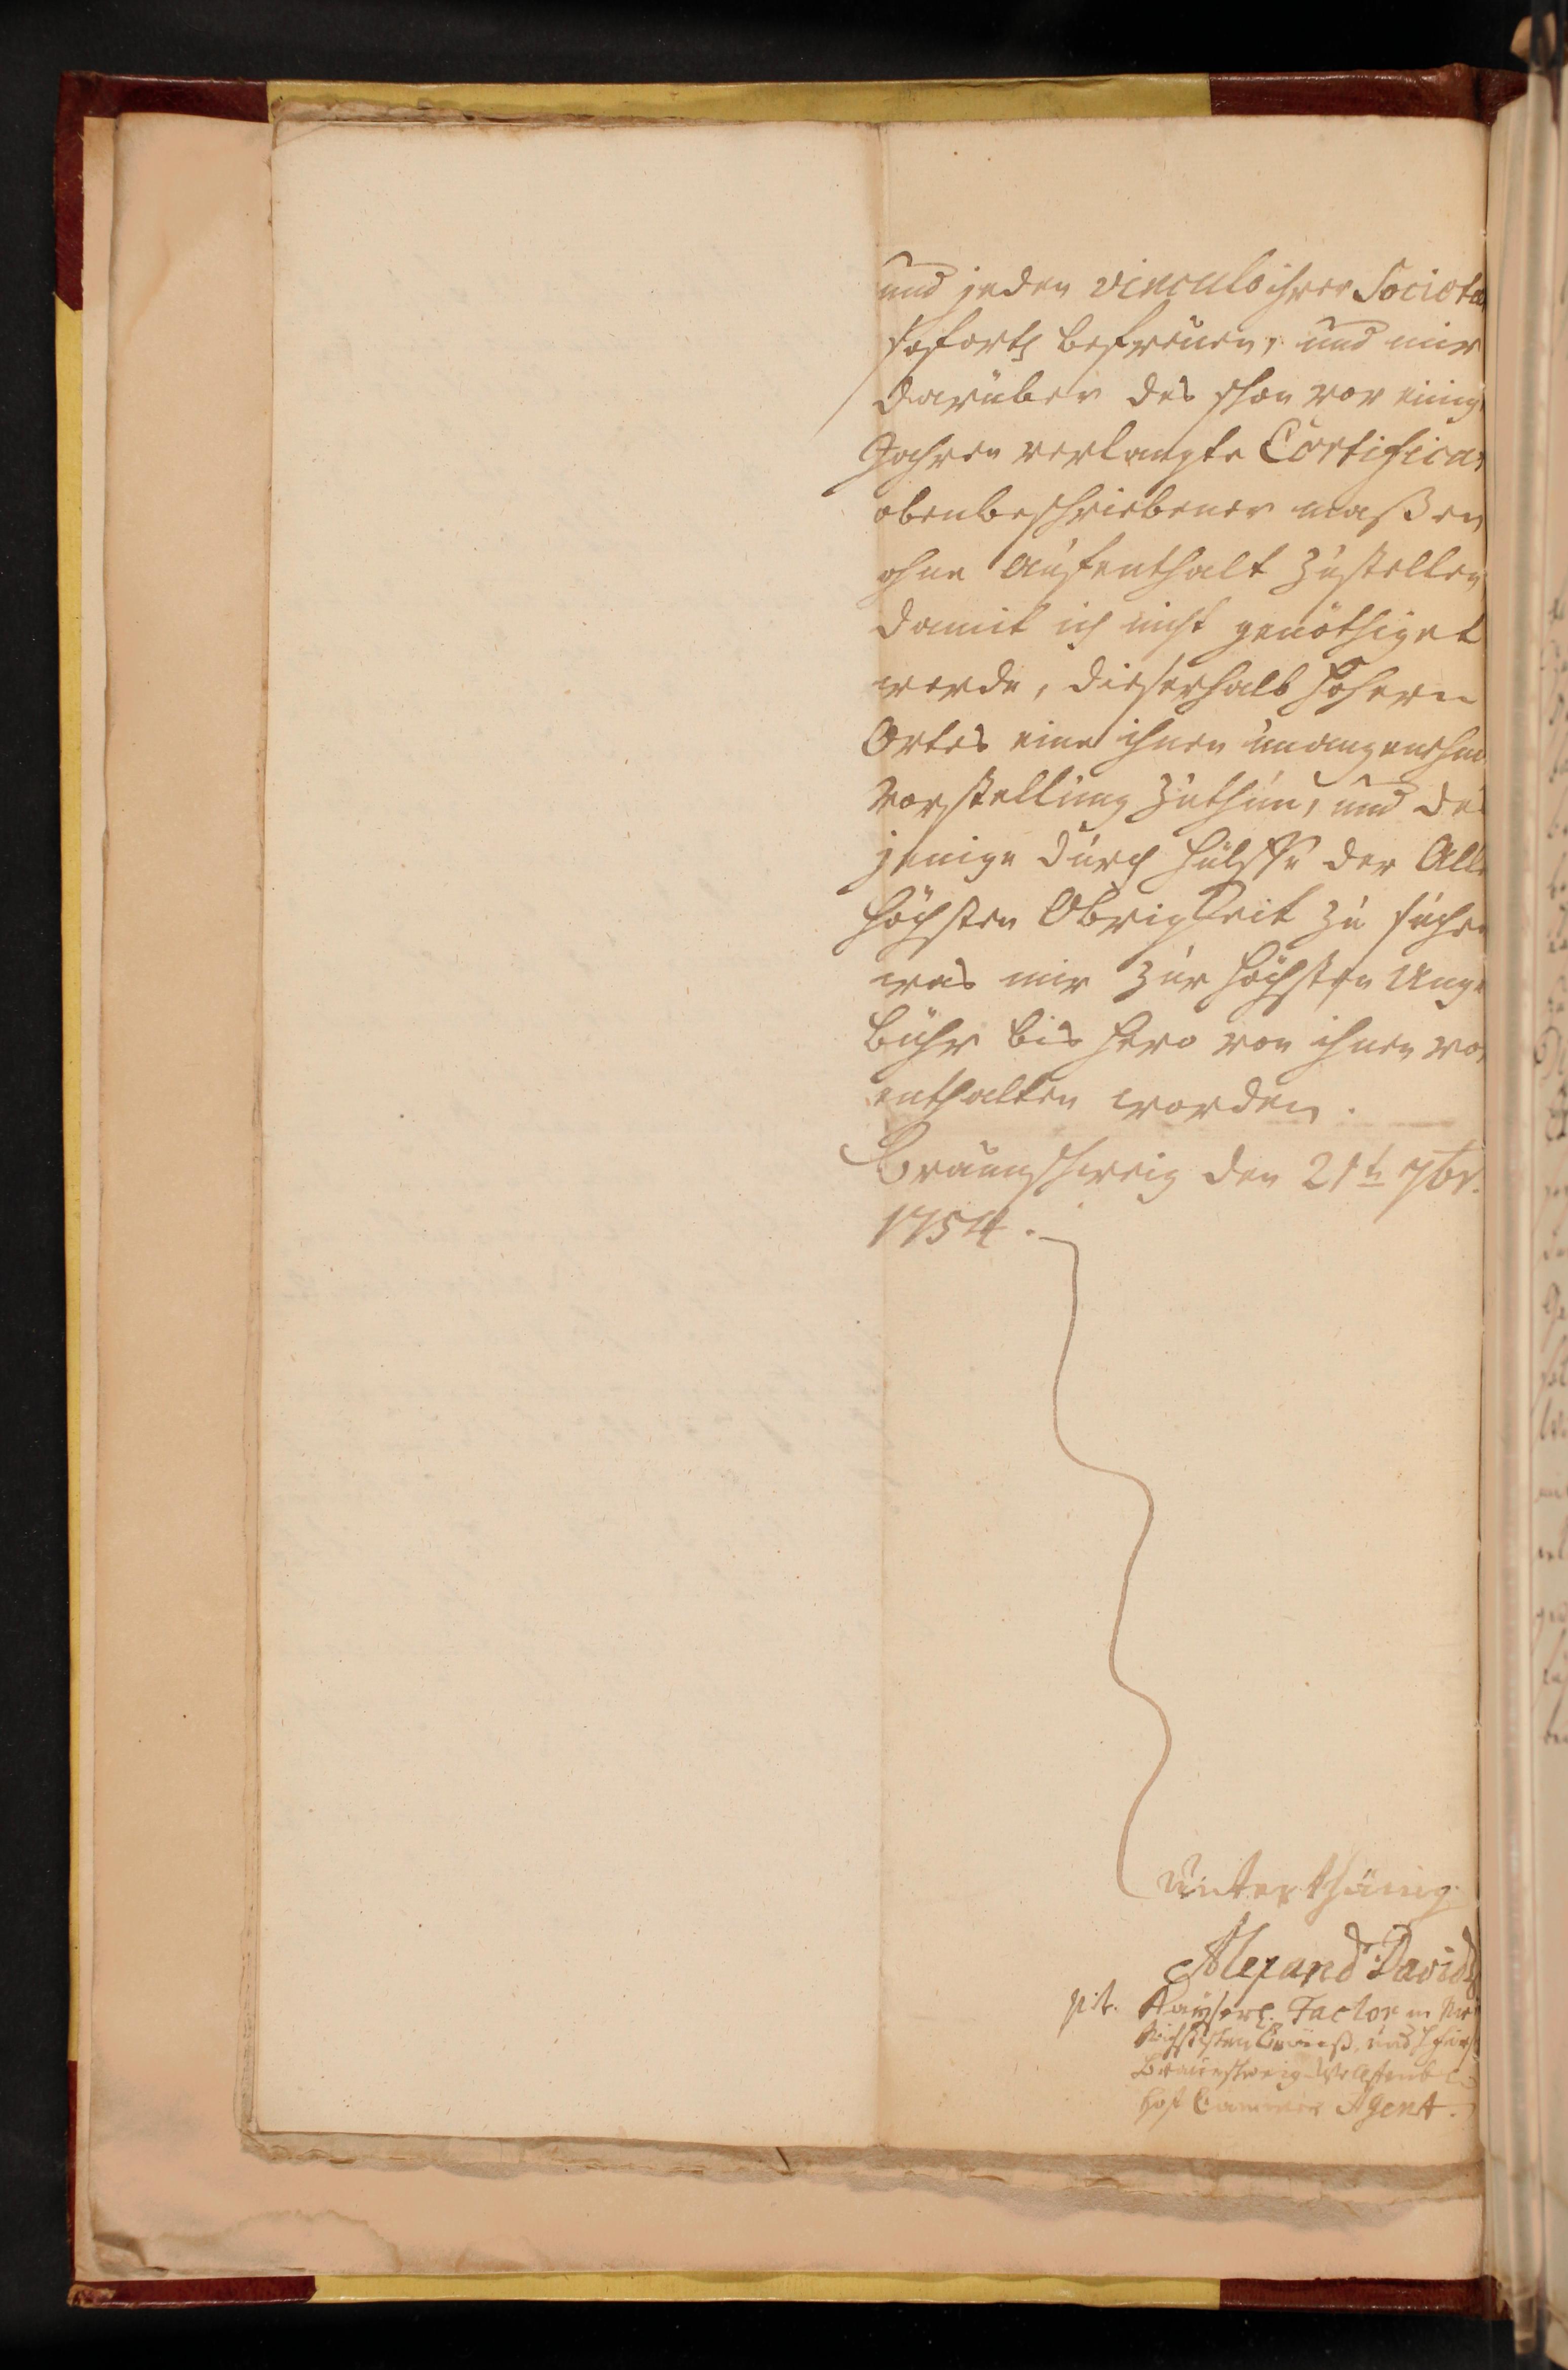 und jeden vinculo ihrer Societæ
soforth befreuen, und mir
darüber das schon vor einig
Jahren verlangte Certifica
obenbeschriebener maßen
ohne Aufenthalt zustellen
damit ich nicht genöthiget
werde, dieserhalb Höhern
Ortes eine ihnen unangenehm
Vorstellung zuthun, und das
jenige durch hülffe der Aller
höchsten Obrigkeit zu suchen
was mir zur höchsten Unge
bühr bis hero von ihnen vor
enthalten worden.
Braunschweig den 21t 7br.
1754.
unterthänig
Alexand David
p.t. Kayserl. Factor im
und Fürst
Braunschweig Wolffenb
Hoff Cammer Agent.